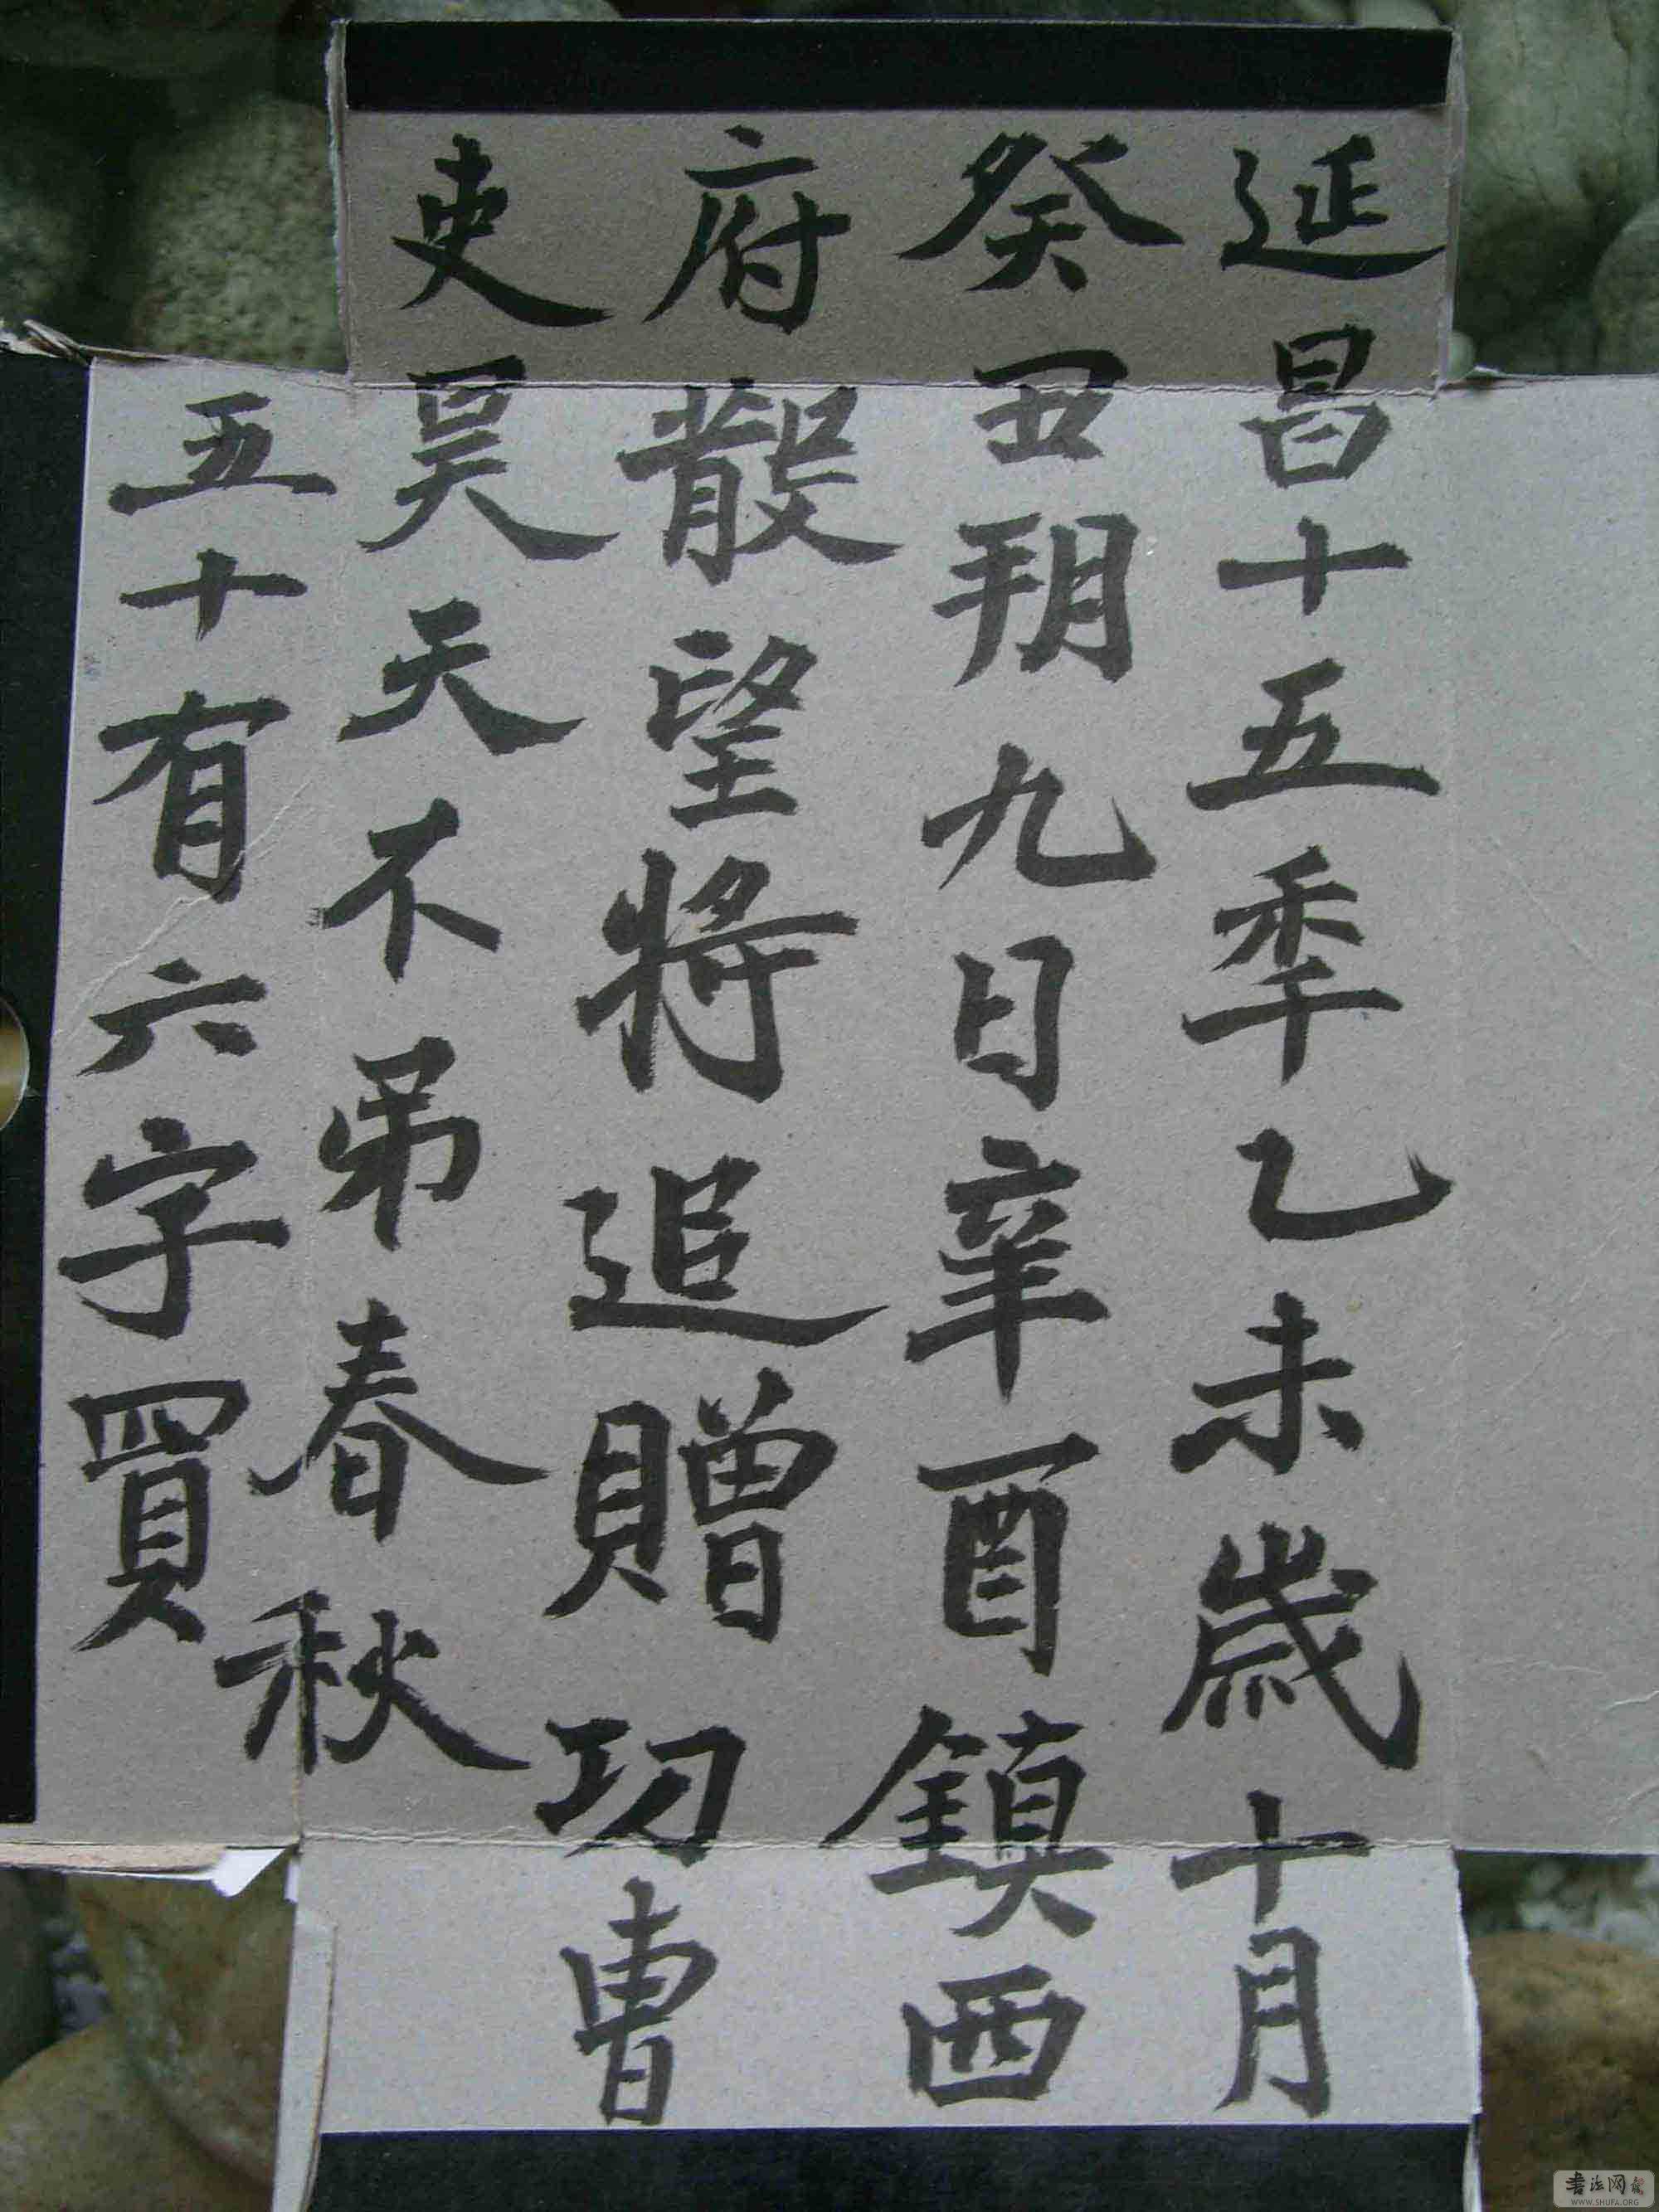 延昌十五季乙未歲十月
癸丑朔九日辛酉鎮西
府散望將追贈功曹
吏昊天不弔春秋
五十有六字買
書法网
WWW.SHUFA.ORG